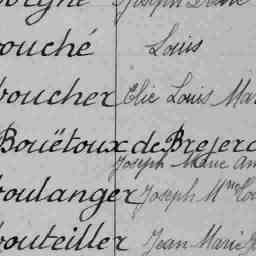 Joseph
ouché Louis
boucher Elie Louis Mar
Bouëtoux de Brejerc
Joseph Marie Am
boulanger Joseph M
bouteiller Jean Marie